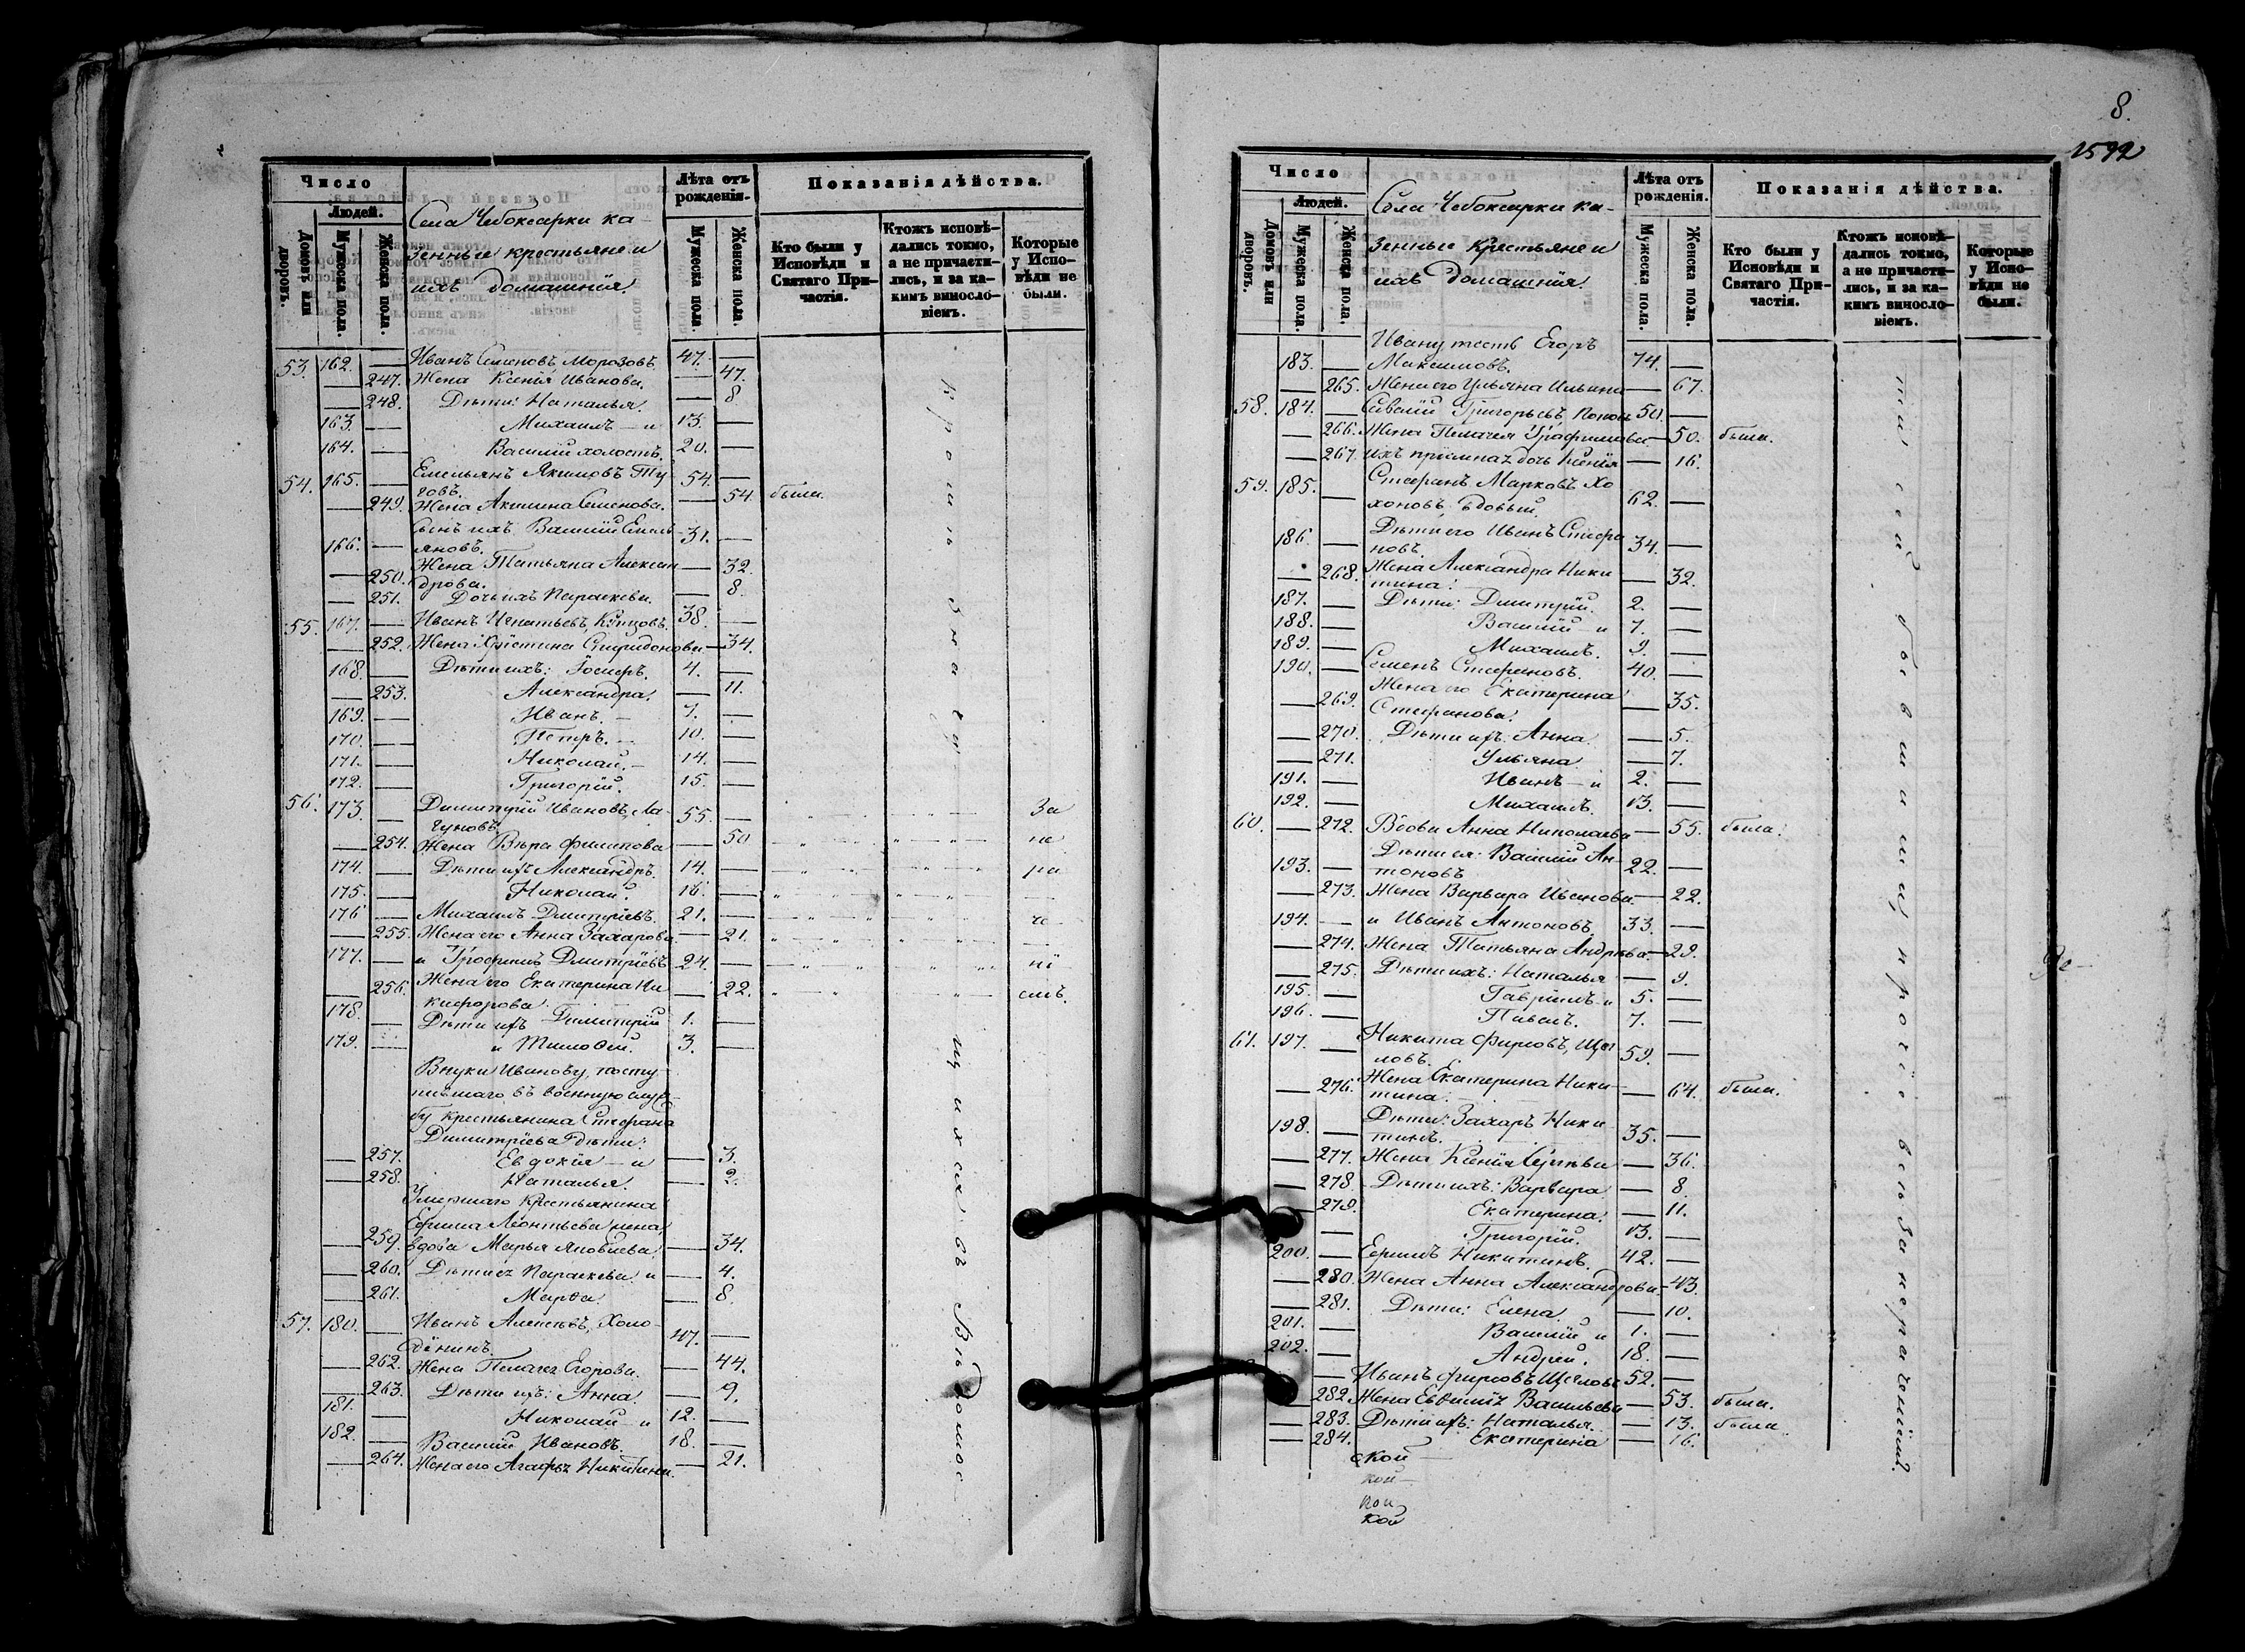 Число
Людей.
Домовъ или дворовъ.
Мужеска пола.
Женска пола.
Села Чебоксарки ка-
зенные крестьяне и
ихъ домашнія.
Лѣта отъ рожденія.
Мужеска пола
Женска пола.
Показанія дѣйства.
Кто были у Исповѣди и Святаго Причастія.
Ктожъ исповѣдались токмо, а не причастились, и за какимъ винословіемъ.
Которые у Исповѣди не были.
53. 162. — Иванъ Семеновъ Морозовъ. 47. —
— 247. Жена Ксенія Иванова. — 47.
— 248. Дѣти: Наталья. — 8
163. — Михаилъ — и 13. —
164. — Василій холостъ. 20. —
54. 165. — Емельянъ Якимовъ Ту- 54. —
ровъ.
— 249. Жена Акилина Семенова. — 54. была.
Сынъ ихъ Василій Емель-
166. — яновъ. 31. —
Жена Татьяна Алексан — 32.
— 250. дрова.
— 251. Дочь ихъ Параскева. — 8.
55. 167. — Иванъ Игнатьевъ, Купцовъ. 38. —
— 252. Жена Христина Спиридонова — 34.
168. — Дѣти ихъ: Іосифъ. 4. —
— 253. Александра. — 11.
169. — Иванъ. — 7. —
170. — Петръ. — 10. —
171. — Николай. — 14. —
172. — Григорій. 15. —
56. 173. — Димитрій Ивановъ, Ла- 55. — За
гуновъ.
— 254. Жена Вѣра Филипова — 50 не
174. — Дѣти ихъ Александръ. 14. — ра
175. — Николай. 16. —
176 — Михаилъ Димитріевъ. 21. — че
— 255. Жена его Анна Захарова — 21.
177. — и Трофимъ Дмитріевъ 24. — ні
— 256. Жена его Екатерина Ни- — 22. емъ.
кифорова
178. — Дѣти ихъ Димитрій 1. —
179. — и Тимоѳей. 3. —
Внуки Иванову, посту-
пившаго въ военную служ-
бу крестьянина Стефана
Димитріева дѣти:
— 257. Евдокія — и — 3.
— 258. Наталья. — 2.
Умершаго крестьянина
Ефима Леонтьева жена,
— 259. вдова Марья Яковлева. — 34.
— 260. Дѣти ея Параскева и — 4.
— 261. Марѳа. — 8.
57. 180. — Иванъ Алексѣевъ, Холо- 47. —
дёнинъ.
— 262. Жена Пелагея Егорова. — 44.
— 263. Дѣти ихъ: Анна. — 9.
181. — Николай — и 12. —
182. — Василій Ивановъ. 18. —
— 264. Жена его Агафья Никитина. — 21.
Кромѣ значущихся въ Вѣдомос-
8.
1592
Число
Людей.
Домовъ или дворовъ.
Мужеска пола.
Женска пола,
Села Чебоксарки ка-
зенные крестьяне и
ихъ домашнія.
Лѣта отъ рожденія.
Мужеска пола.
Женска пола.
Показанія дѣйства.
Кто были у Исповѣди и Святаго Причастія.
Ктожъ исповѣдались токмо, а не причастились, и за какимъ винословіемъ.
Которые у Исповѣди не были.
Ивану тесть Егоръ
183. — Максимовъ. 74. —
— 265. Жена его Ульяна Ильина — 67.
58. 184. — Савелій Григорьевъ, Поповъ 50. —
— 266. Жена Пелагея Трофимова — 50. была.
— 267. ихъ пріимная дочь Ксенія — 16.
59. 185. — Стефанъ Марковъ Хо- 62. —
хоновъ вдовый.
Дѣти его Иванъ Стефа
186. — новъ. 34. —
— 268. Жена Александра Ники — 32.
тина.
187. — Дѣти: Димитрій. 2. —
188. — Василій — и 7. —
189. — Михаилъ. 9. —
190. — Семенъ Стефановъ. 40. —
— 269. Жена его Екатерина — 35.
Стефанова.
— 270. Дѣти ихъ: Анна. — 5.
— 271. Ульяна — 7.
191. — Иванъ — и 2. —
192. — Михаилъ. 13. —
60. — 272. Вдова Анна Николаева — 55. была.
Дѣти ея: Василій Ан-
193. — тоновъ 22. —
— 273. Жена Варвара Иванова — 22.
194. — и Иванъ Антоновъ. 33. —
— 274. Жена Татьяна Андрѣева — 29.
— 275. Дѣти ихъ: Наталья — 9.
195. — Гавріилъ и 5. —
196. — Павелъ. 7. —
61. 197. — Никита Фирсовъ, Щег 59. —
ловъ.
— 276. Жена Екатерина Ники- — 64. была.
тина.
198. — Дѣти: Захаръ Ники- 35. —
тинъ.
— 277. Жена Ксенія Сергѣева — 36.
— 278. Дѣти ихъ: Варвара — 8.
— 279. Екатерина. — 11.
— Григорій. 13. —
200. — Ефимъ Никитинъ. 42. —
— 280. Жена Анна Александрова — 43.
— 281. Дѣти: Елена. — 10.
201. — Василій и 1. —
202. — Андрей. 18. —
— Иванъ Фирсовъ Щегловъ 52. —
— 282. Жена Евѳимія Васильева — 53. была.
— 283. Дѣти ихъ: Наталья. — 13. была
— 284. Екатерина — 16.
ти сей, бывшими, прочіе всѣ за нераченіемъ.
ской —
кой —
кой
кой